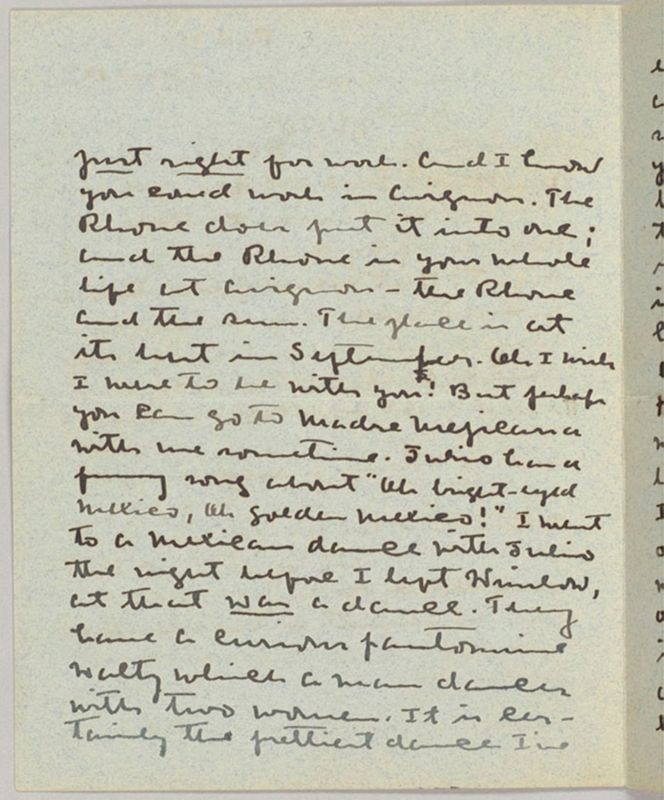 3
just right for work. And I know
you could work in Avignon. The
Rhone does put it into one;
and the Rhone is your whole
life at Avignon - the Rhone
and the sun. The place is at
its best in September. Oh I wish
I were to be with you! But perhaps
you can go to Madre Mejicana
with me sometime. Julio has a
funny song about "Oh bright-eyed
Mexico, Oh golden Mexico!" I went
to a Mexican dance with Julio
the night before I left Winslow,
at that was a dance. They
have a curious pantomime
waltz which a man dances
with two women. It is cer-
tainly the prettiest dance I've